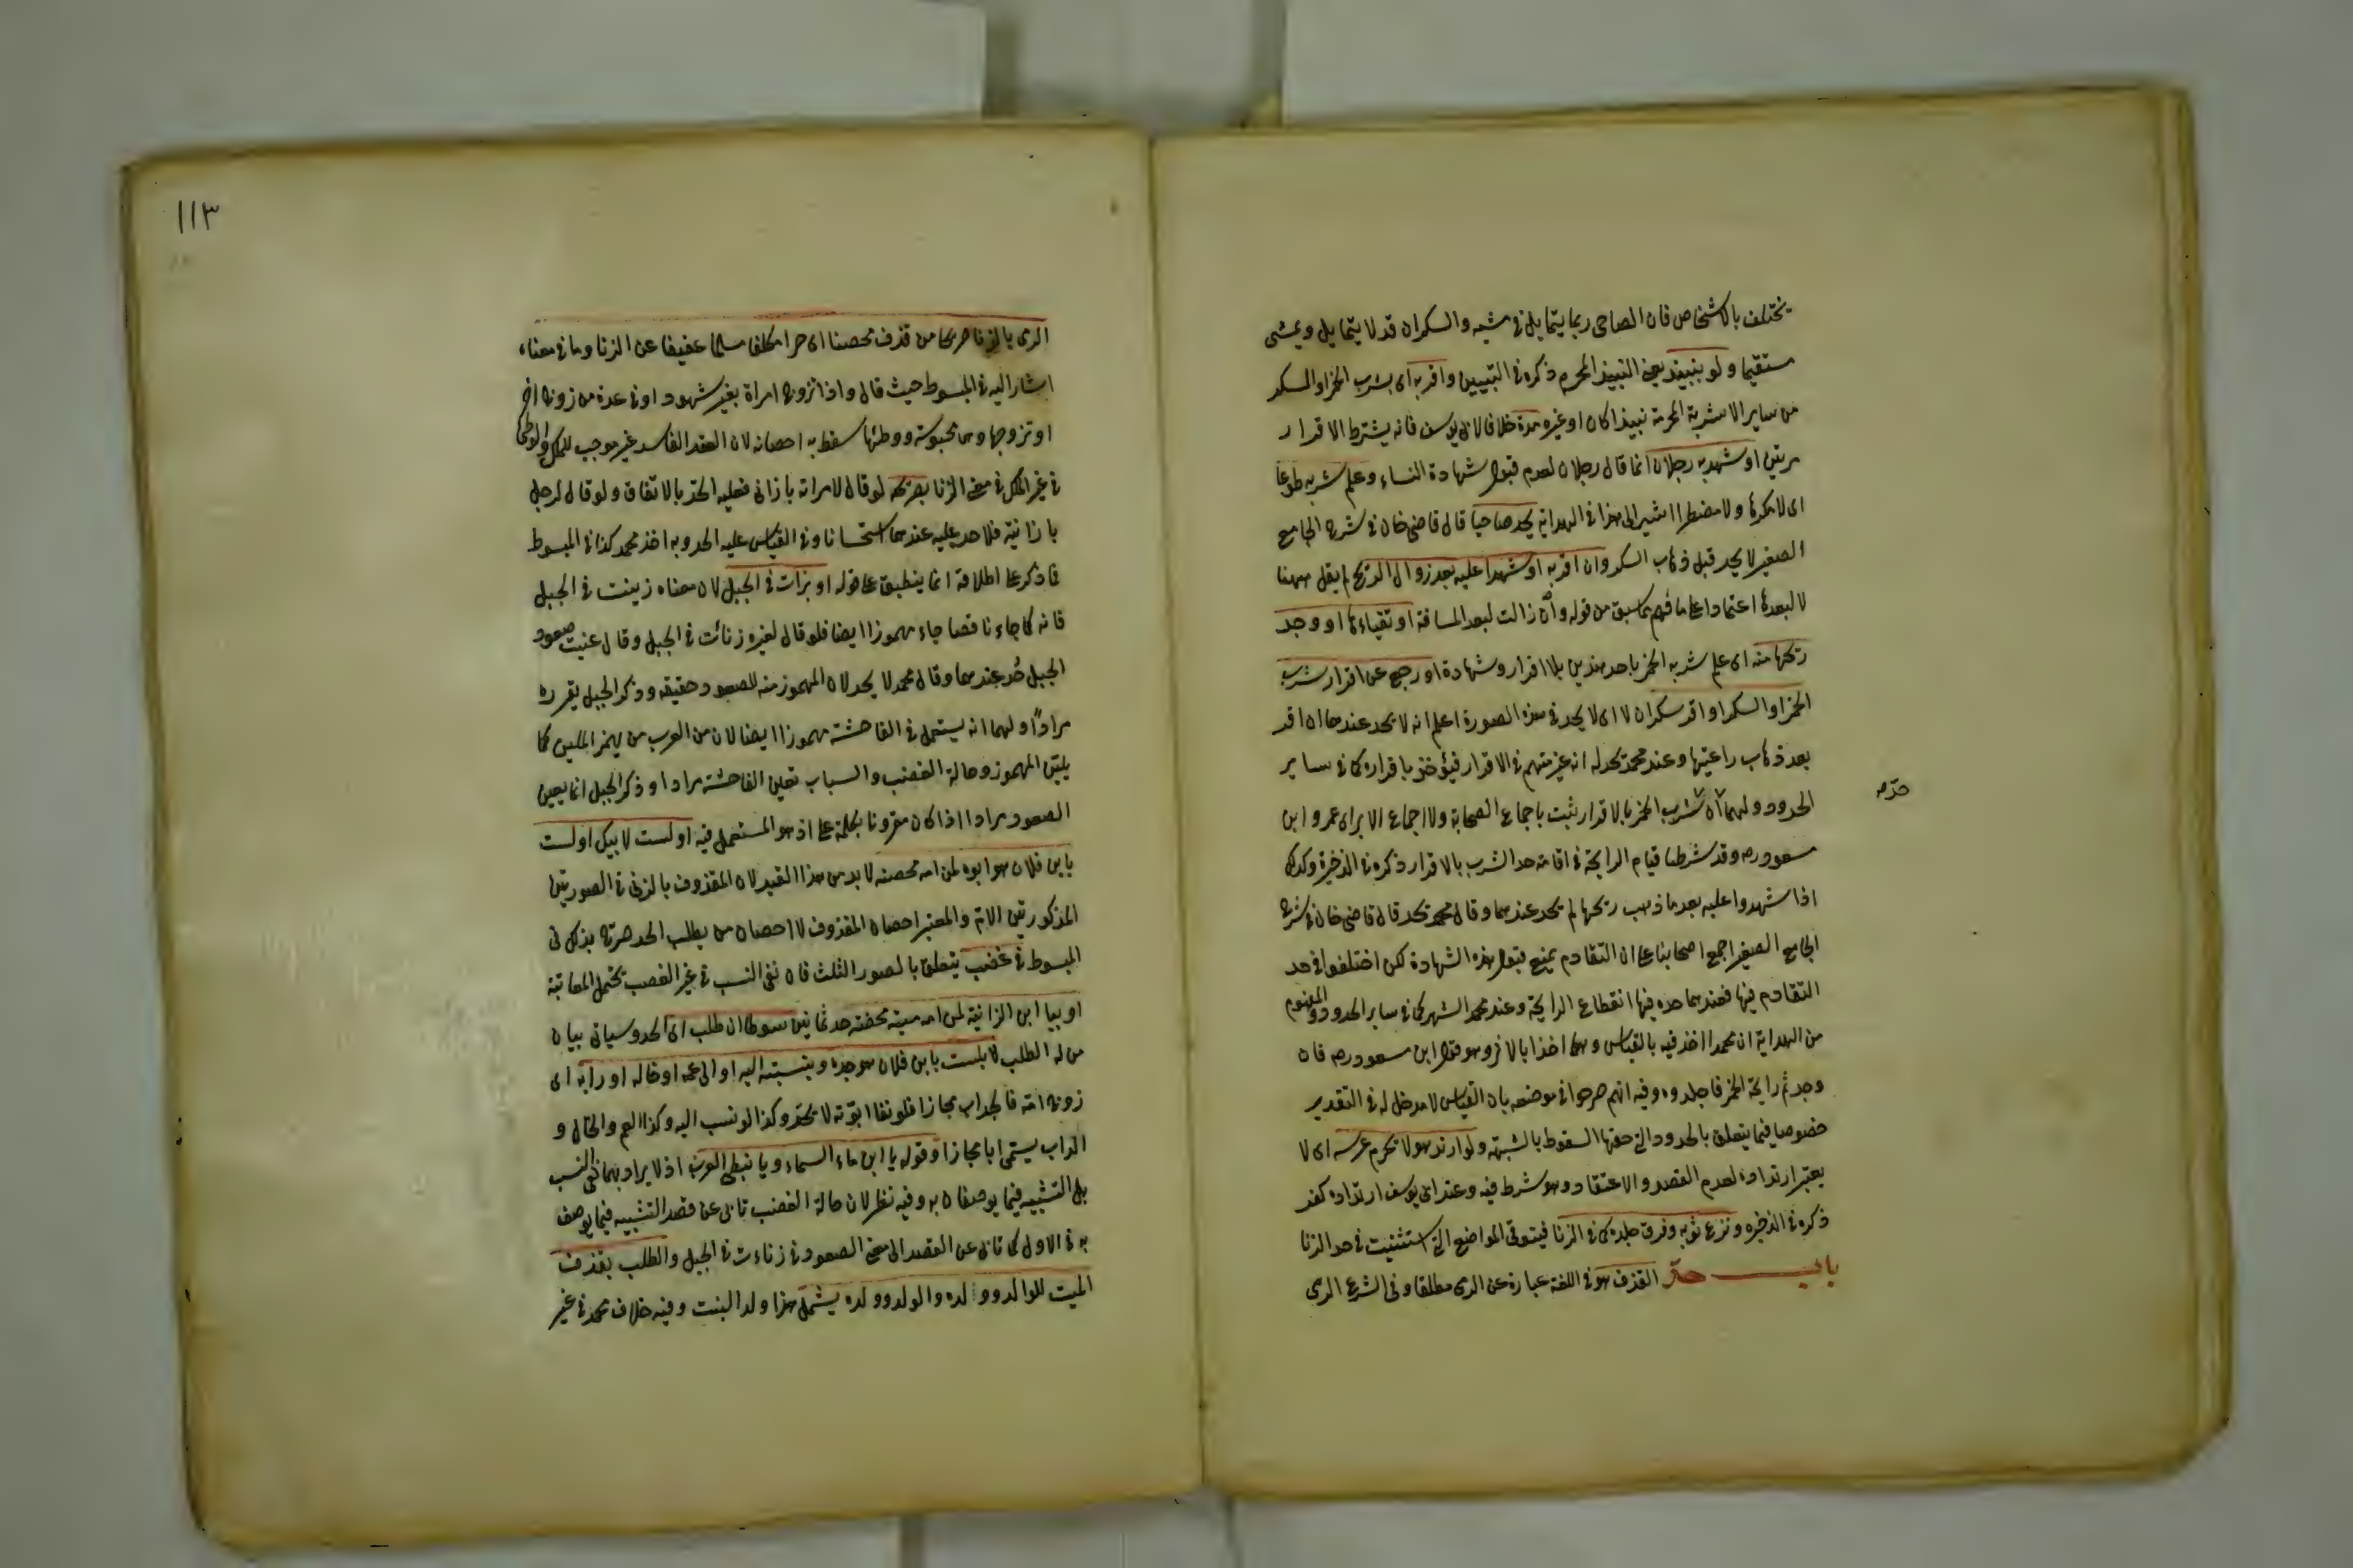 يختلف بالاشخاص فان الصاحى ربما يتمايل فى مشيه والسكران قد لا يتمايل ويمشى
مستقيما ولو بنبيذ يعنى النبيذ المحرم ذكره فى التبيين واقر به اى بشرب الخمر او السكر
من ساير الاشربة المحرمة نبيذا كان او غيره مرة خلافا لابى يوسف فانه يشترط الاقرار
مرتين او شهد به رجلان انما قال رجلان لعدم قبول شهادة النساء وعلم شربه طوعا
اى لا مكرها ولا مضطرا اشير الى هذا فى الهداية يحد صاحيا قال قاضى خان فى شرح الجامع
الصغير لا يحد قبل ذهاب السكر وان اقر به او شهدا عليه بعد زوال الريح لم يقل ههنا
لا لبعدها اعتمادا على ما فهم مما سبق من قوله وان زالت لبعد المسافة او تقياءها او وجد
ريحها منه اى علم شربه الخمر باحد هذين بلا اقرار وشهادة او رجع عن اقرار شرب
الخمر او السكر او اقر سكران لا اى لا يحد فى هذه الصورة اعلم انه لا يحد عندهما ان اقر
بعد ذهاب راعيتها وعند محمد يحد له انه غير متهم فى الاقرار فيؤخذ باقراره كما فى ساير
الحدود ولهما ان شرب الخمر بالاقرار ثبت باجماع الصحابة ولا اجماع الا براى عمر وابن
حد صه
مسعود رضه وقد شرطا قيام الرايحة فى اقامة حد الشرب بالاقرار ذكره فى الذخيرة وكذلك
اذا شهدوا عليه بعد ما ذهب ريحها لم يحد عندهما وقال محمد يحد قال قاضى خان فى شرح
الجامع الصغير اجمع اصحابنا على ان التقادم يمنع قبول هذه الشهادة لكن اختلفوا فى حد
التقادم فيها فعندهما حده فيها انقطاع الرايحة وعند محمد الشهر كما فى ساير الحدود والمفهوم
من الهداية ان محمدا اخذ فيه بالقياس وهما اخذا بالاثر وهو قول ابن مسعود رضه فان
وجدتم رايحة الخمر فاجلدوه وفيه انهم صرحوا فى موضعه بان القياس لا مدخل له فى التقدير
خصوصا فيما يتعلق بالحدود التى حقها السقوط بالشبهة ولو ارتد هو لا تحرم عرسه اى لا
يعتبر ارتداده لعدم القصد والاعتقاد وهو شرط فيه وعند ابى يوسف ارتداده كفر
ذكره فى الذخيره ونزع ثوبه وفرق جلده كما فى الزنا فيتوقى المواضع التى استثنيت فى حد الزنا
باب حد القذف هو فى اللغة عبارة عن الرمى مطلقا وفى الشرع الرمى
١١٣
الرمى بالزنا صريحا من قذف محصنا اى حرا مكلفا مسلما عفيفا عن الزنا وما فى معناه
اشار اليه فى المبسوط حيث قال واذا تزوج امراة بغير شهود او فى عدة من زوج اخر
او تزوجها وهى مجوسية ووطئها سقط به احصانه لان العقد الفاسد غير موجب للملك والوطئ
فى غير الملك فى معنى الزنا بصريحه لو قال لامراته يا زانى فعليه الحد بالاتفاق ولو قال لرجل
يا زانية فلا حد عليه عندهما استحسانا وفى القياس عليه الحد وبه اخذ محمد كذا فى المبسوط
فاذكر على اطلاقه انما ينطبق على قوله او بزنات فى الجبل لان معناه زنيت فى الجبل
فانه كما جاء ناقصا جاء مهموزا ايضا فلو قال لغيره زنائت فى الجبل وقال عنيت صعود
الجبل حد عندهما وقال محمد لا يحد لان المهموز منه للصعود حقيقه وذكر الجبل يقرره
مرادا ولهما انه يستعمل فى الفاحشة مهموزا ايضا لان من العرب من يهمز الملين كما
يلين المهموز وحالة الغضب والسباب تعين الفاحشة مرادا وذكر الجبل انما يعين
الصعود مرادا اذا كان مقرونا بكلمة على اذ هو المستعمل فيه او لست لابيك او لست
بابن فلان هو ابوه لمن امه محصنه لابد من هذا القيد لان المقذوف بالزنى فى الصورتين
المذكورتين الام والمعتبر احصان المقذوف لا احصان من يطلب الحد صرح بذلك فى
المبسوط فى غضب يتعلق بالصور الثلث فان نفى النسب فى غير الغصب يحتمل المعاتبة
او بيا ابن الزانية لمن امه ميتة محصنة حد ثمانين سوطا ان طلب اى الحد وسياتى بيان
من له الطلب لا بلست بابن فلان هو جده وبنسبته اليه او الى عمه او خاله او رابه اى
زوج امه فالجد اب مجازا فلو نفا ابوته لا يحد وكذا لو نسب اليه وكذا العم والخال و
الراب يسمى ابا مجازا وقوله يا ابن ماء السماء ويا نبطى لعربى اذ لا يراد بهما نفى النسب
بل التشبيه فيما يوصفان به وفيه نظر لان حالة الغضب تابى عن قصد التشبيه فيما يوصف
به فى الاول كما تابى عن القصد الى معنى الصعود فى زناءت فى الجبل والطلب بقذف
الميت للوالد وولده والولد وولده يشمل هذا ولد البنت وفيه خلاف محمد فى غير